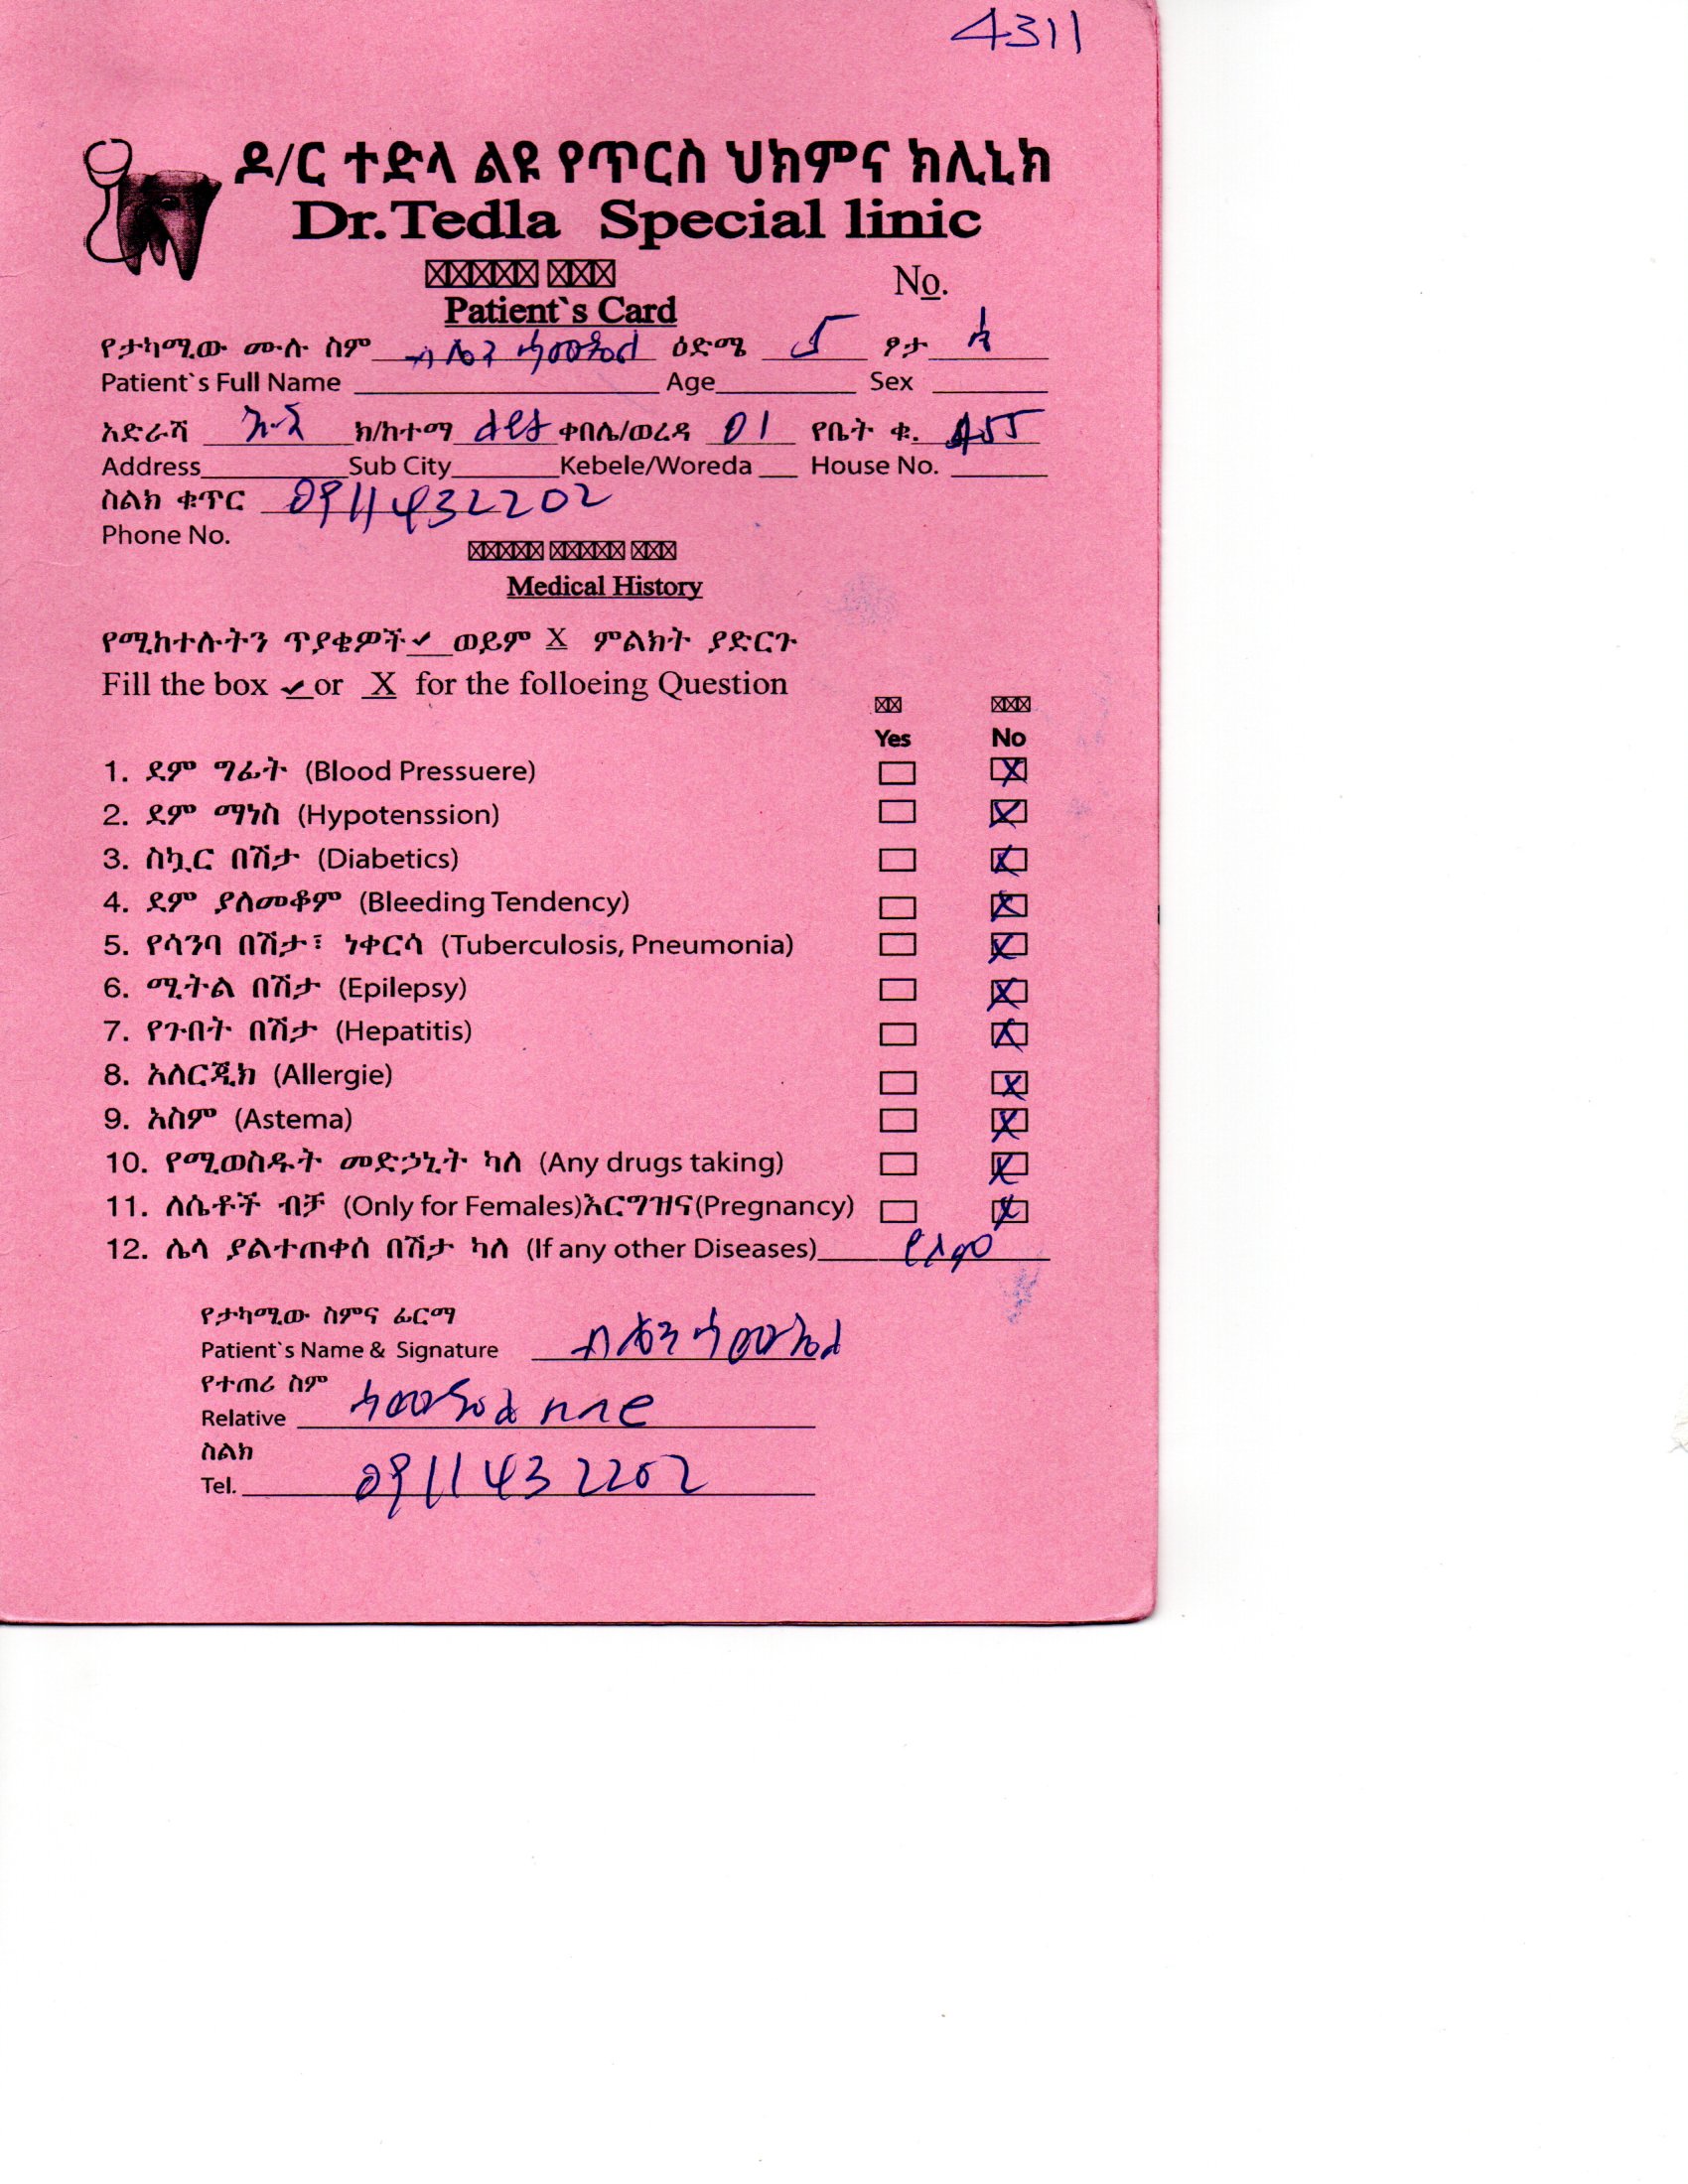 4311
ዶ/ር ተድላ ልዩ የጥርስ ህክምና ክሊኒክ
Dr.Tedla Special linic
No.
Patient`s Card
የታካሚው ሙሉ ስም ዕድሜ 5 ፆታ
Patient`s Full Name Age Sex
አድራሻ ክ/ከተማ ቀበሌ/ወረዳ 01 የቤት ቁ.
Address Sub City Kebele/Woreda House No.
ስልክ ቁጥር 0911432202
Phone No.
Medical History
የሚከተሉትን ጥያቄዎች ✓ ወይም X ምልክት ያድርጉ
Fill the box ✓ or X for the folloeing Question
Yes No
1. ደም ግፊት (Blood Pressuere) X
2. ደም ማነስ (Hypotenssion) X
3. ስኳር በሽታ (Diabetics) X
4. ደም ያለመቆም (Bleeding Tendency) X
5. የሳንባ በሽታ፣ ነቀርሳ (Tuberculosis, Pneumonia) X
6. ሚትል በሽታ (Epilepsy) X
7. የጉበት በሽታ (Hepatitis) X
8. አለርጂክ (Allergie) X
9. አስም (Astema) X
10. የሚወስዱት መድኃኒት ካለ (Any drugs taking) X
11. ለሴቶች ብቻ (Only for Females)እርግዝና(Pregnancy) X
12. ሌላ ያልተጠቀሰ በሽታ ካለ (If any other Diseases) የለም
የታካሚው ስምና ፊርማ
Patient`s Name & Signature
የተጠሪ ስም
Relative
ስልክ
Tel. 0911432202